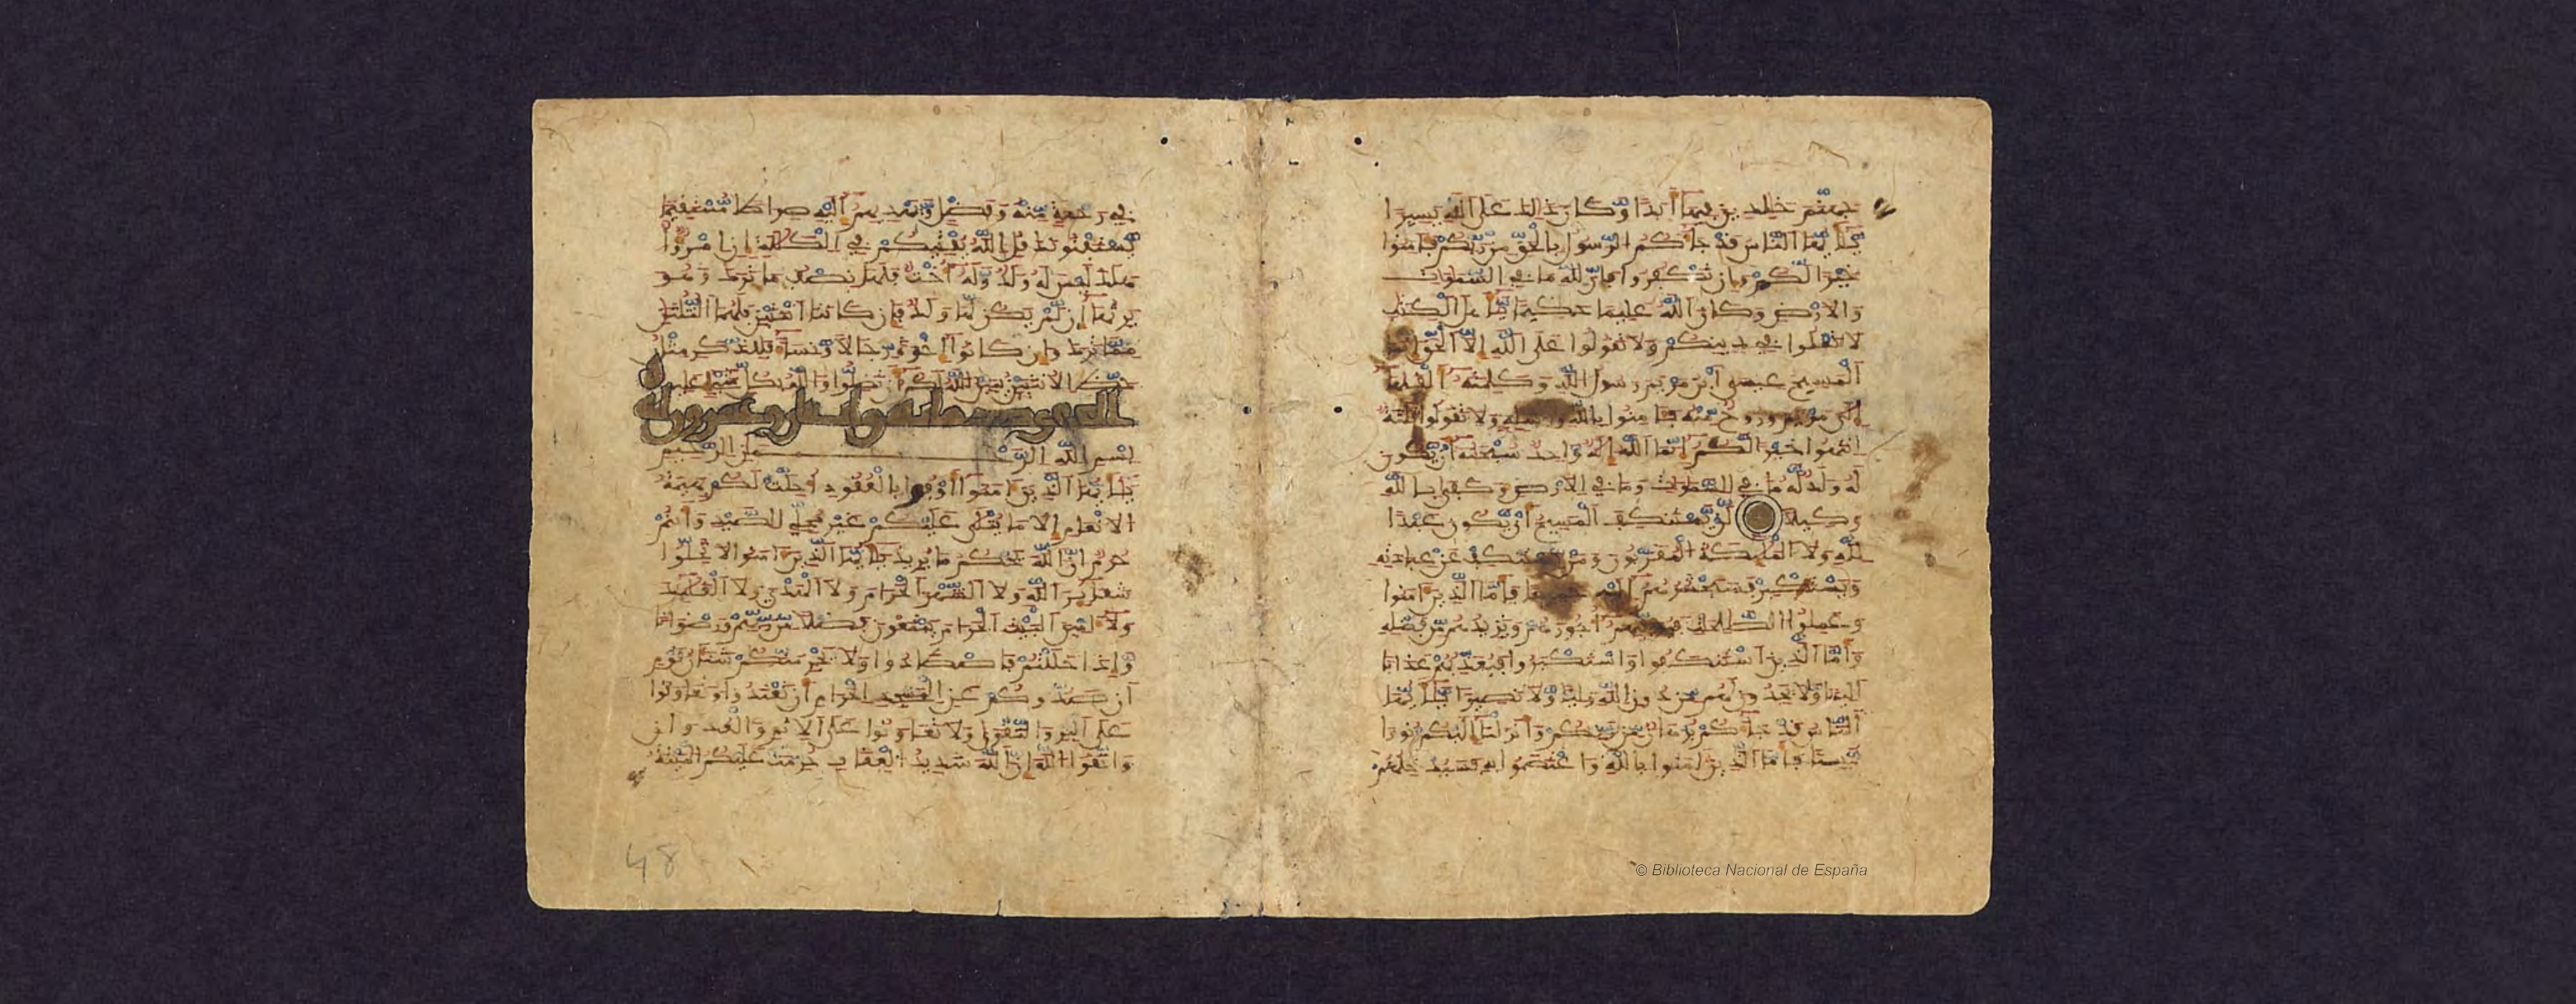 جهنم خلدين فيها أبدا وكان ذلك على الله يسيرا
يأيها الناس قد جاكم الرسول بالحق من ربكم فامنوا
خيرا لكم وإن تكفروا فإن لله ما في السموت
والارض وكان الله عليما حكيما يأهل الكتب
لا تغلوا في دينكم ولا تقولوا على الله إلا الحق إنما
المسيح عيسى ابن مريم رسول الله وكلمته ألقيها
إلى مريم وروح منه فامنوا بالله ورسله ولا تقولوا ثلثة
انتهوا خيرا لكم إنما الله إله واحد سبحنه أن يكون
له ولد له ما في السموت وما في الارض وكفى بالله
وكيلا لن يستنكف المسيح أن يكون عبدا
لله ولا المليكة المقربون ومن يستنكف عن عبادته
ويستكبر فسيحشرهم إليه جميعا فأما الذين امنوا
وعملوا الصلحت فيوفيهم أجورهم ويزيدهم من فضله
وأما الذين استنكفوا واستكبروا فيعذبهم عذابا
أليما ولا يجدون لهم من دون الله وليا ولا نصيرا يأيها
الناس قد جاكم برهن من ربكم وأنزلنا إليكم نورا
مبينا فأما الذين امنوا بالله واعتصموا به فسيدخلهم
في رحمة منه وفضل ويهديهم إليه صراطا مستقيما
يستفتونك قل الله يفتيكم في الكللة إن امرؤا
هلك ليس له ولد وله أخت فلها نصف ما ترك وهو
يرثها إن لم يكن لها ولد فإن كانتا اثنتين فلهما الثلثن
مما ترك وإن كانوا إخوة رجالا ونسا فللذكر مثل
حظ الانثيين يبين الله لكم أن تضلوا والله بكل شيء عليم
المائدة مائة وعشرون اية
بسم الله الرحمن الرحيم
يأيها الذين امنوا أوفوا بالعقود أحلت لكم بهيمة
الانعم إلا ما يتلى عليكم غير محلي الصيد وأنتم
حرم إن الله يحكم ما يريد يأيها الذين امنوا لا تحلوا
شعير الله ولا الشهر الحرام ولا الهدي ولا القليد
ولا امين البيت الحرام يبتغون فضلا من ربهم ورضوانا
وإذا حللتم فاصطادوا ولا يجرمنكم شنان قوم
أن صدوكم عن المسجد الحرام أن تعتدوا وتعاونوا
على البر والتقوى ولا تعاونوا على الاثم والعدون
واتقوا الله إن الله شديد العقاب حرمت عليكم الميتة
48
© Biblioteca Nacional de España